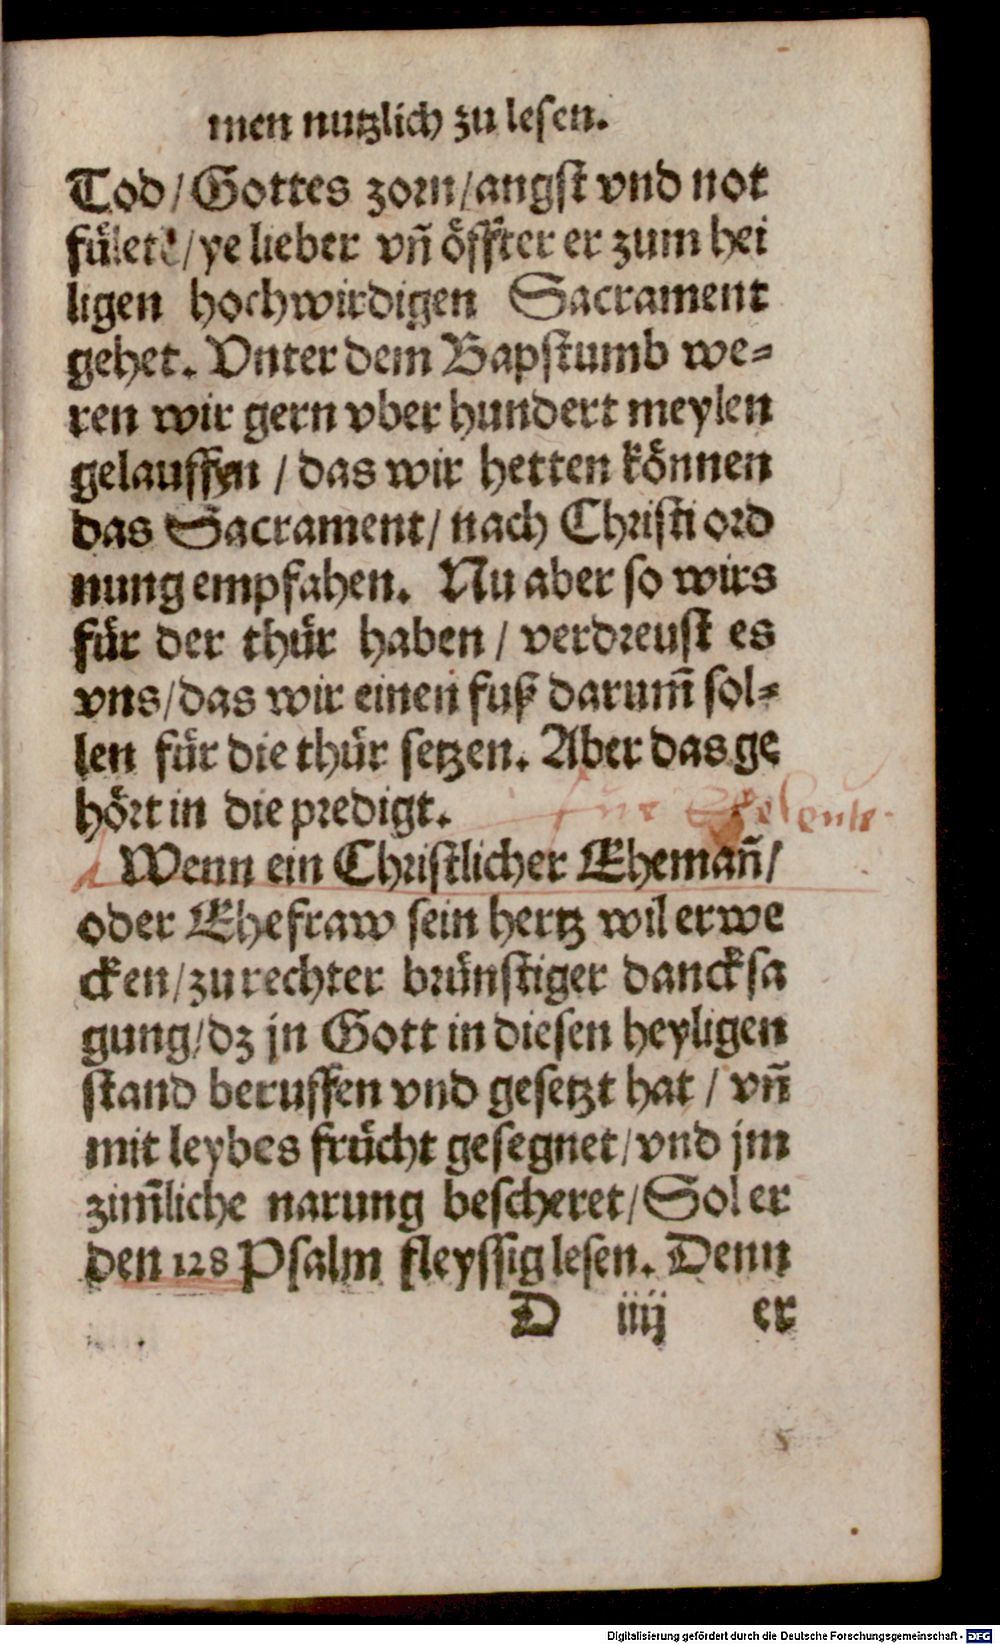 men nutzlich zu lesen.
Tod / Gottes zorn / angst vnd not
fület / ye lieber vñ öffter er zum hei
ligen hochwirdigen Sacrament
gehet. Vnter dem Bapstumb we=
ren wir gern vber hundert meylen
gelauffen / das wir hetten können
das Sacrament / nach Christi ord
nung empfahen. Nu aber so wirs
für der thür haben / verdreust es
vns / das wir einen fuß darum̃ sol=
len für die thür setzen. Aber das ge
hört in die predigt.
für Eeleute.
Wenn ein Christlicher Ehemañ /
oder Ehefraw sein hertz wil erwe
cken / zu rechter brünstiger dancksa
gung / dz jn Gott in diesen heyligen
stand beruffen vnd gesetzt hat / vñ
mit leybes frücht gesegnet / vnd jm
zim̃liche narung bescheret / Sol er
den 128 Psalm fleyssig lesen. Denn
D iiij er
Digitalisierung gefördert durch die Deutsche Forschungsgemeinschaft - DFG